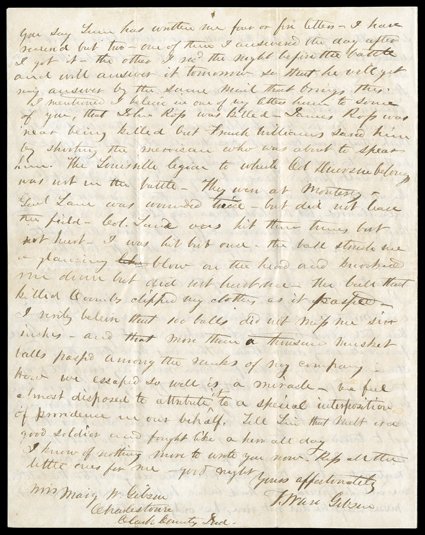 You say Line has written me four or five letters - I have
received but two - one of them I answered the day after
I got it - the other I recd the night before the battle
and will answer it tomorrow so that he will get
my answer by the same mail that brings this.
I mentioned I believe in one of my letters home to some
of you, that John Ross was killed - James Ross was
near being killed but Frank Williams saved him
by shooting the mexican who was about to spear
him. The Louisville legion to which Col belongs
was not in the battle - They were at Monterey -
Genl Lane was wounded twice - but did not leave
the field - Col. Lane was hit three times but
not hurt - I was hit but once - the ball struck me
a glancing blow on the head and knocked
me down but did not hurt me - the ball that
killed Coombs clipped my clothes as it passed -
I verily believe that 100 balls did not miss me six
inches - and that more than a thousand musket
balls passed among the ranks of my company -
how we escaped so well is a miracle - we feel
almost disposed to attribute it to a special interposition
of providence in our behalf. Tell that is a
good soldier and fought like a hero all day
I know of nothing more to write you now. Kiss all the
little ones for me - good night
Yours affectionately
T. Ware Gibson
Mrs Mary W. Gibson
Charlestown
Clark County Ind.